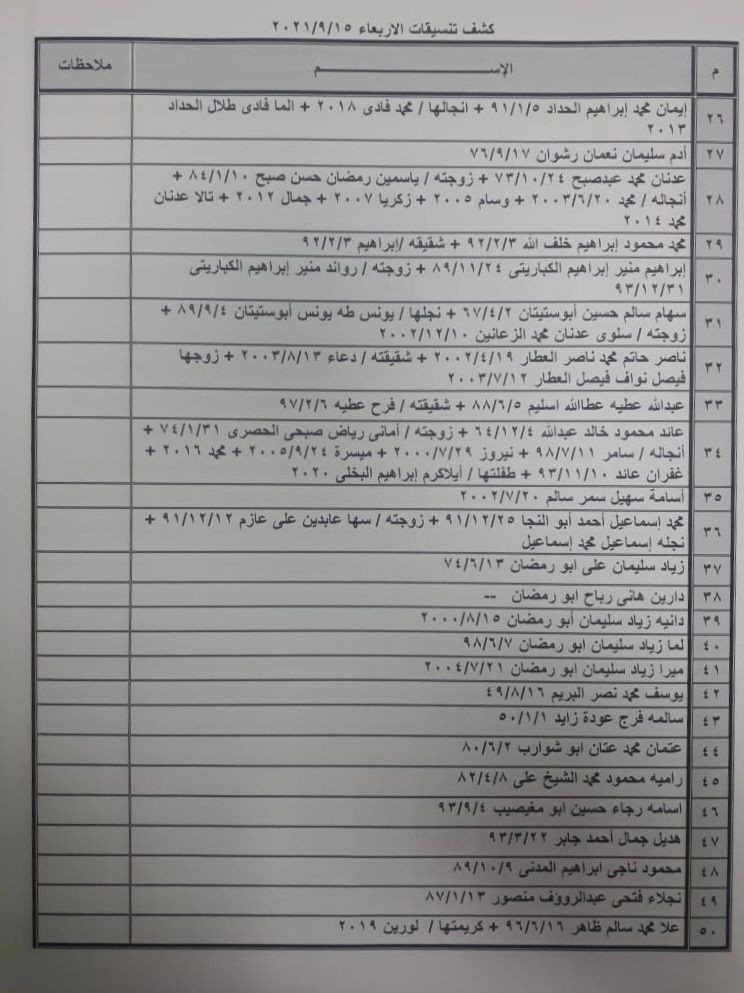 كشف تنسيقات الاربعاء ٢٠٢١/٩/١٥
م الإســـــــم ملاحظات
٢٦ إيمان محمد إبراهيم الحداد ٩١/١/٥ + انجالها / محمد فادى ٢٠١٨ + الما فادى طلال الحداد
٢٠١٣
٢٧ أدم سليمان نعمان رشوان ٧٦/٩/١٧
٢٨ عدنان محمد عبدصبح ٧٣/١٠/٢٤ + زوجته / ياسمين رمضان حسن صبح ٨٤/١/١٠ +
أنجاله / محمد ٢٠٠٣/٦/٢٠ + وسام ٢٠٠٥ + زكريا ٢٠٠٧ + جمال ٢٠١٢ + تالا عدنان
محمد ٢٠١٤
٢٩ محمد محمود إبراهيم خلف الله ٩٢/٢/٣ + شقيقه /إبراهيم ٩٢/٢/٣
٣٠ إبراهيم منير إبراهيم الكباريتى ٨٩/١١/٢٤ + زوجته / رواند منير إبراهيم الكباريتى
٩٣/١٢/٣١
٣١ سهام سالم حسين أبوستيتان ٦٧/٤/٢ + نجلها / يونس طه يونس أبوستيتان ٨٩/٩/٤ +
زوجته / سلوى عدنان محمد الزعانين ٢٠٠٢/١٢/١٠
٣٢ ناصر حاتم محمد ناصر العطار ٢٠٠٢/٤/١٩ + شقيقته / دعاء ٢٠٠٣/٨/١٣ + زوجها
فيصل نواف فيصل العطار ٢٠٠٣/٧/١٢
٣٣ عبدالله عطيه عطاالله اسليم ٨٨/٦/٥ + شقيقته / فرح عطيه ٩٧/٢/٦
٣٤ عائد محمود خالد عبدالله ٦٤/١٢/٤ + زوجته / أمانى رياض صبحى الحصرى ٧٤/١/٣١ +
أنجاله / سامر ٩٨/٧/١١ + نيروز ٢٠٠٠/٧/٢٩ + ميسرة ٢٠٠٥/٩/٢٤ + محمد ٢٠١٦ +
غفران عائد ٩٣/١١/١٠ + طفلتها / أيلاكرم إبراهيم البخلى ٢٠٢٠
٣٥ أسامة سهيل سمر سالم ٢٠٠٢/٧/٢٠
٣٦ محمد إسماعيل أحمد أبو النجا ٩١/١٢/٢٥ + زوجته / سها عابدين على عازم ٩١/١٢/١٢ +
نجله إسماعيل محمد إسماعيل
٣٧ زياد سليمان على ابو رمضان ٧٤/٦/١٣
٣٨ دارين هانى رباح ابو رمضان --
٣٩ دانيه زياد سليمان أبو رمضان ٢٠٠٠/٨/١٥
٤٠ لما زياد سليمان ابو رمضان ٩٨/٦/٧
٤١ ميرا زياد سليمان ابو رمضان ٢٠٠٤/٧/٢١
٤٢ يوسف محمد نصر البريم ٤٩/٨/١٦
٤٣ سالمه فرج عودة زايد ٥٠/١/١
٤٤ عتمان محمد عتان ابو شوارب ٨٠/٦/٢
٤٥ راميه محمود محمد الشيخ على ٨٢/٤/٨
٤٦ اسامه رجاء حسين ابو مغيصيب ٩٣/٩/٤
٤٧ هديل جمال أحمد جابر ٩٣/٣/٢٢
٤٨ محمود ناجى ابراهيم المدنى ٨٩/١٠/٩
٤٩ نجلاء فتحى عبدالروؤف منصور ٨٧/١/١٣
٥٠ علا محمد سالم ظاهر ٩٦/٦/١٦ + كريمتها / لورين ٢٠١٩